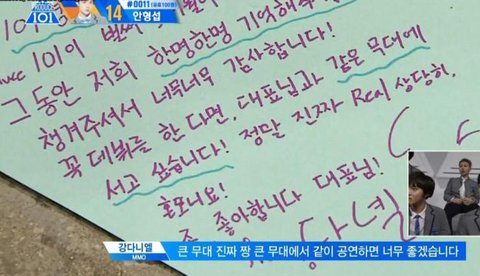 PRODUCE 101
14
#0011
안형섭
101이
그 동안 저희 한명한명 기억해주
챙겨주셔서 너무너무 감사합니다!
꼭 데뷔를 한다면, 대표님과 같은 무대에
서고 싶습니다! 정말 진짜 Real 상당히.
좋아합니다 대표님!
강다니엘
MMO
큰 무대 진짜 짱 큰 무대에서 같이 공연하면 너무 좋겠습니다